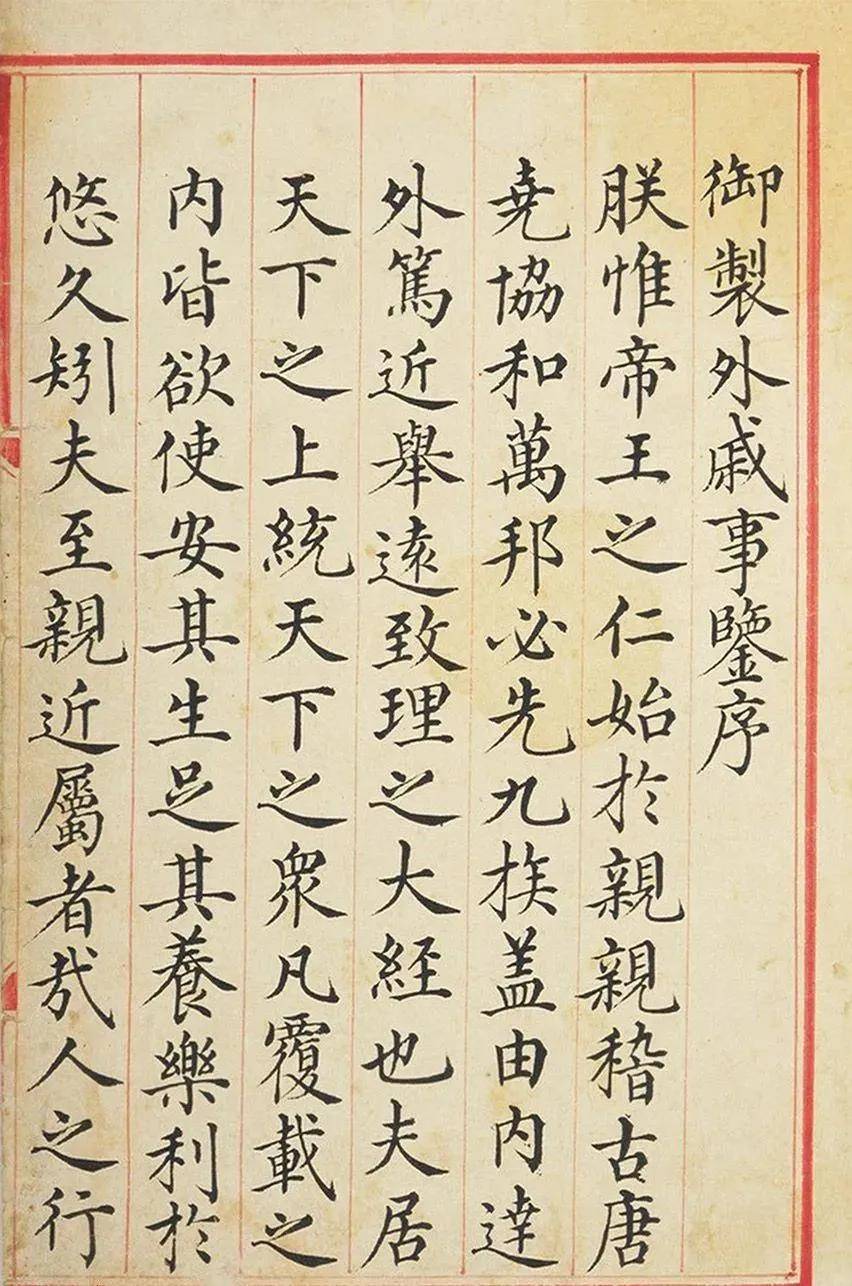 御製外戚事鑒序
朕惟帝王之仁始於親親稽古唐
堯協和萬邦必先九族蓋由内達
外篤近舉遠致理之大經也夫居
天下之上統天下之衆凡覆載之
内皆欲使安其生足其養樂利於
悠久矧夫至親近屬者哉人之行